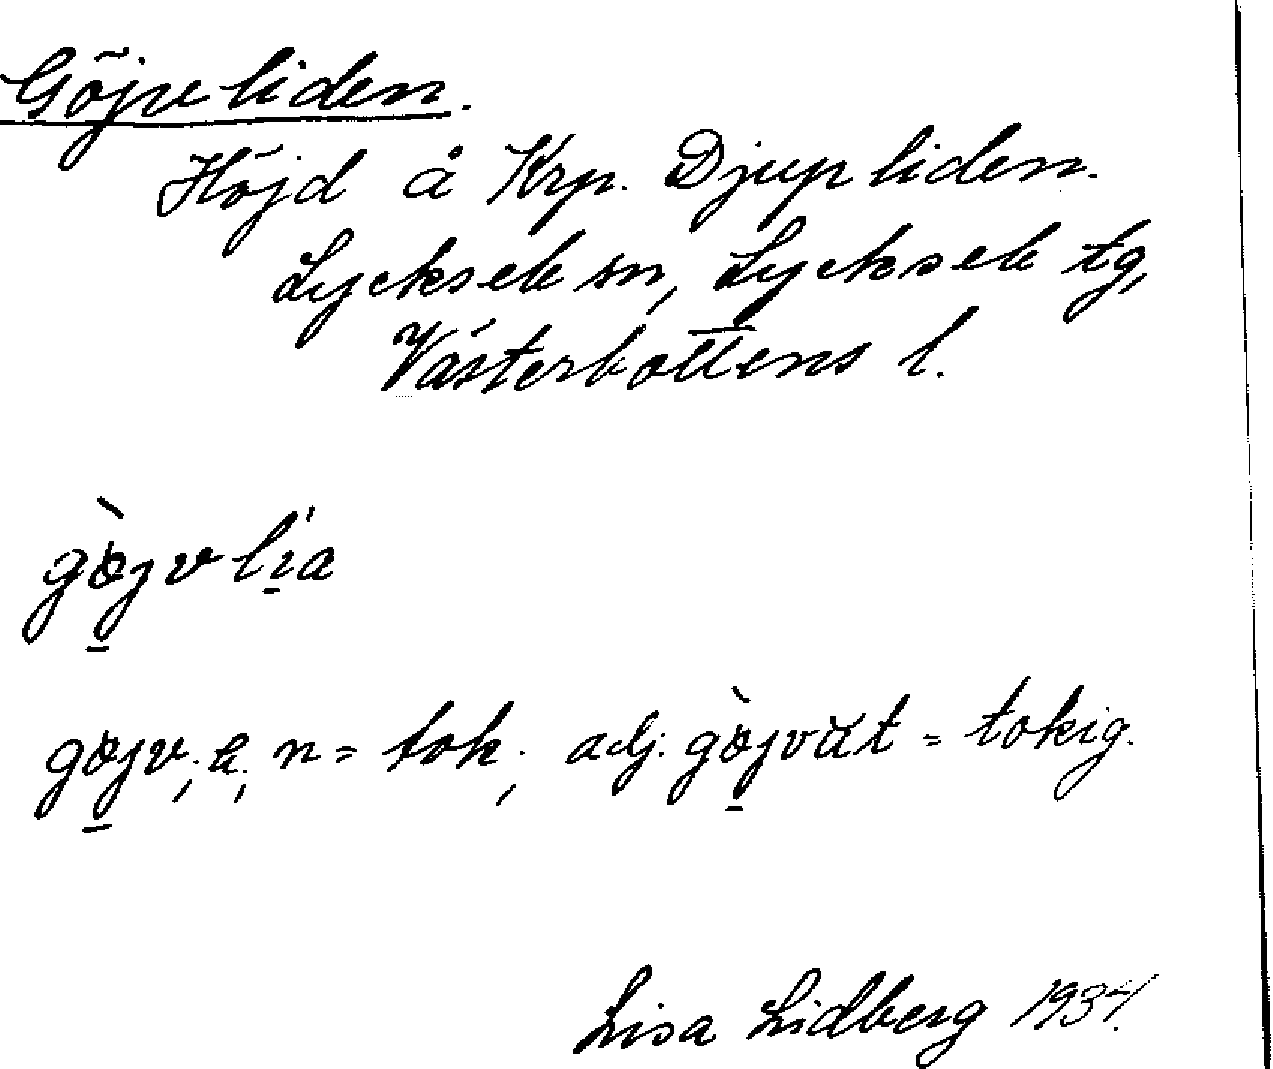 Göjveliden.
Höjd å Krp. Djupliden.
Lycksele sn, Lycksele tg,
Västerbottens l.
gò̱jvlía
gø̱jv; e; n = tok; adj. gø̱̀jvăt = tokig.
Lisa Lidberg 1934.